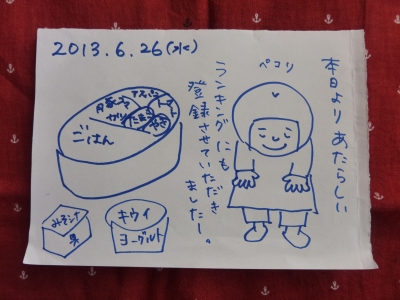 2013.6.26(水)
本日より あたらしい
ランキングにも
登録させていただき
ましたー。
ペコリ
アスパラ
トマト
豚キム
ガリ
たまご
やき
ごはん
みそシナ
果
キウイ
ヨーグルト